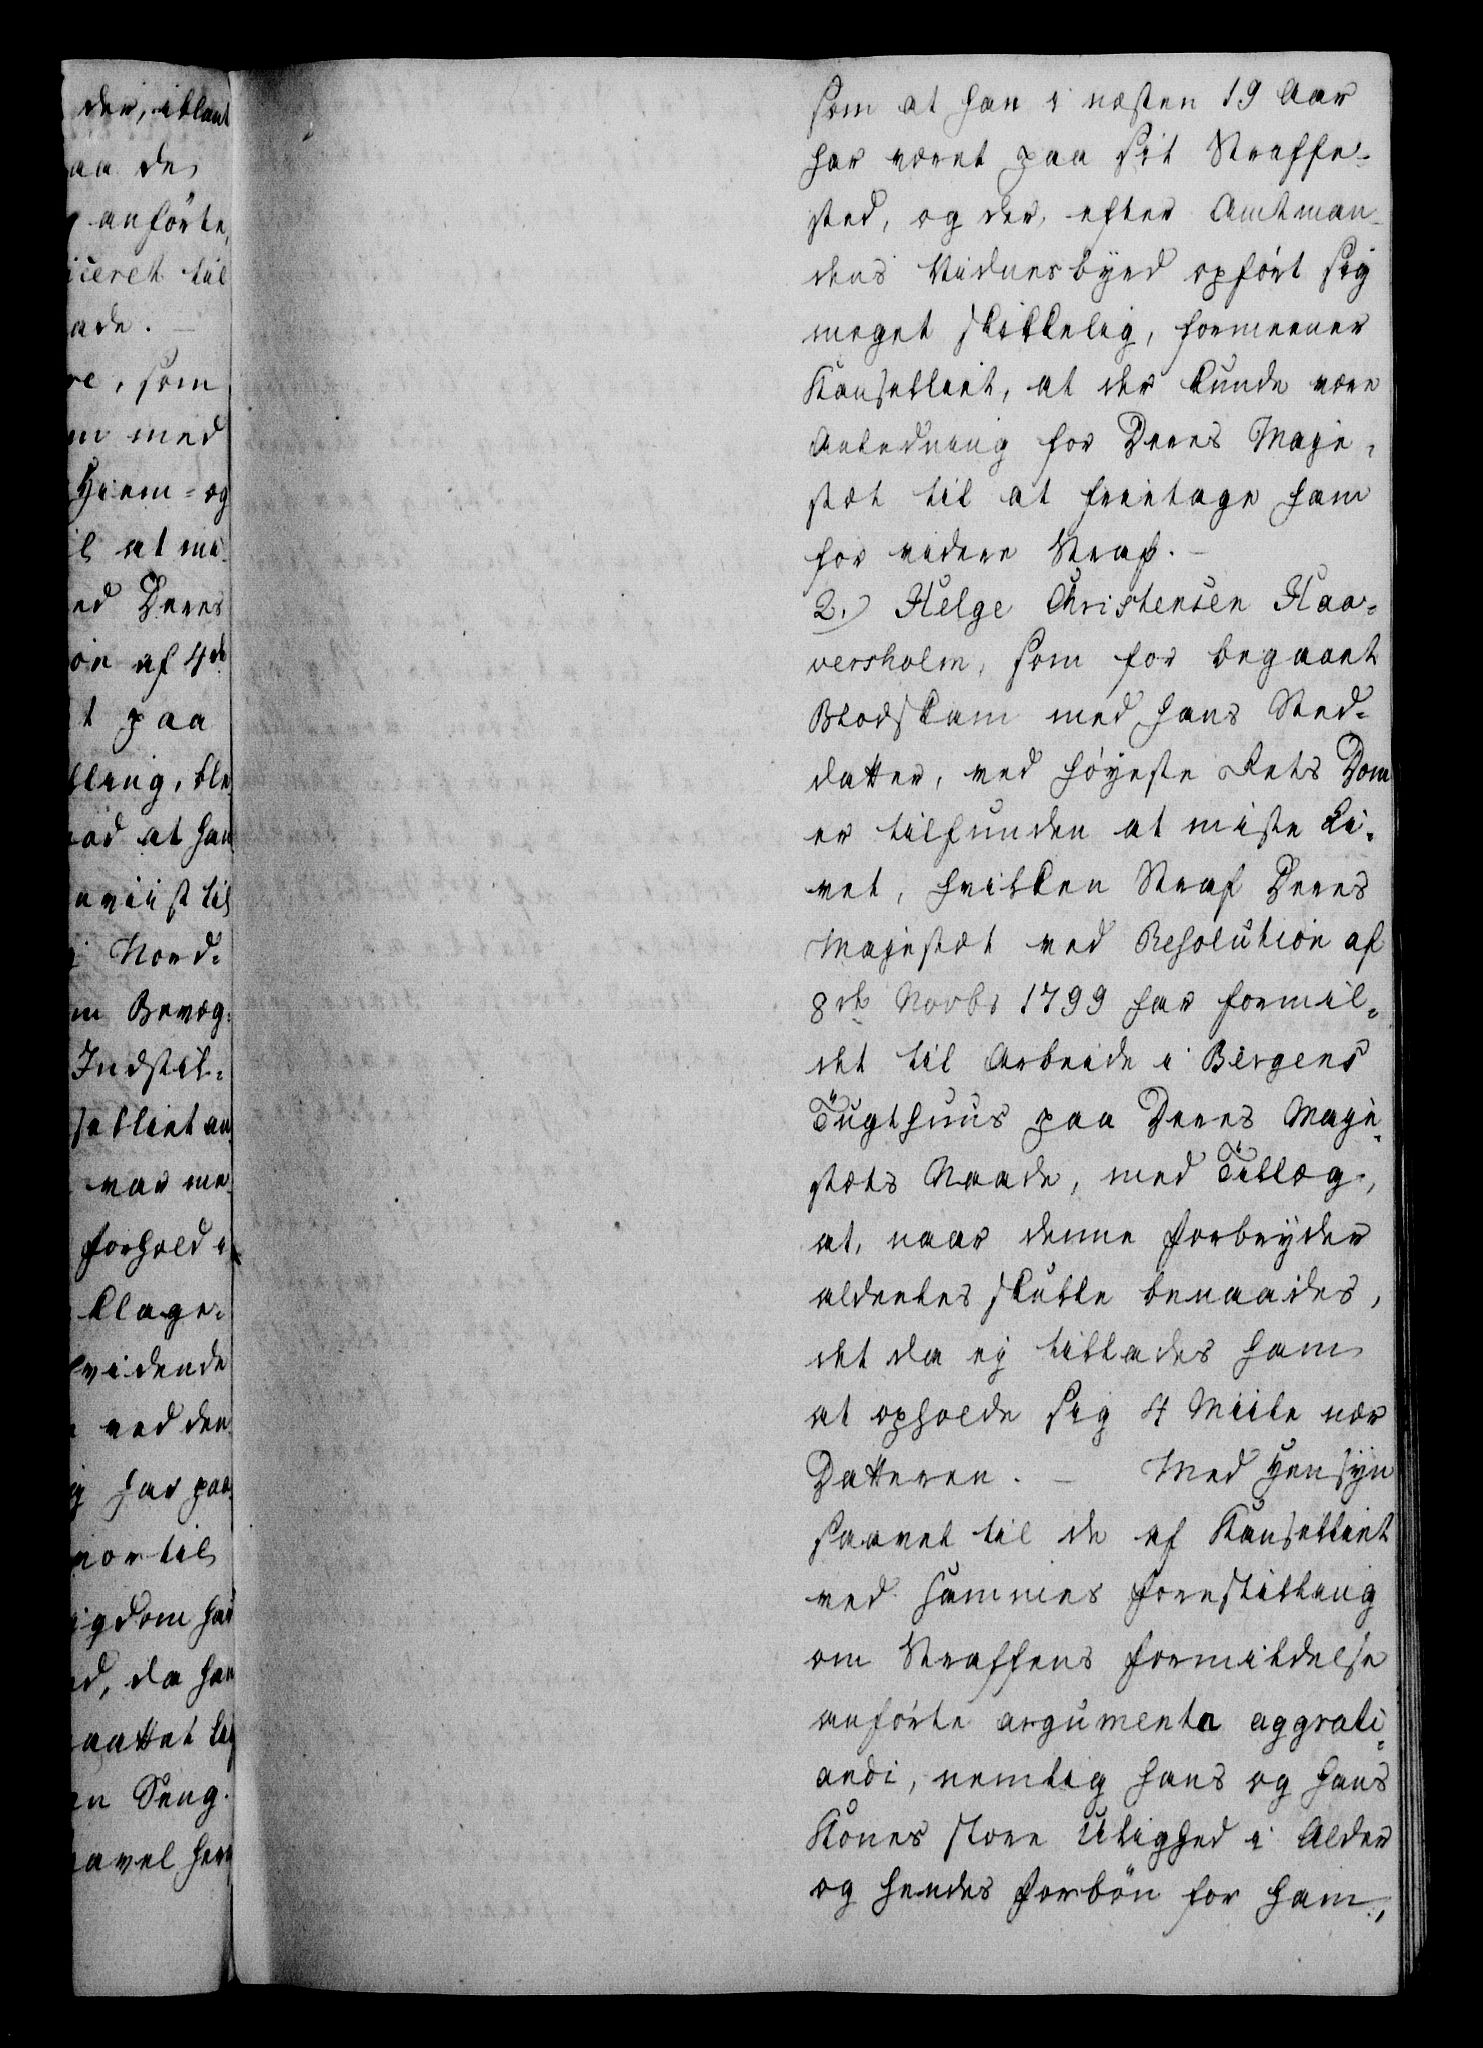 der, iblant
aa de
anförte,
iceret til
ade. —
re, som
m med
Hiem- og
l at mi-
ed Deres
on af 4de
t paa
lling, ble
od at han
nviist til
i Nord-
m Bevæg-
Indstil-
selliet an
var me-
Forhold i
Klage-
vidende
ved den
g har paa-
vor til
igdom har
d, da han
aattet
n Seng.
avel
som at han i næsten 19 Aar
har været paa sit Straffe-
sted, og der, efter Amtman-
dens Vidnesbyrd opført sig
meget skikkelig, formeener
Kanselliet, at der kunde være
Anledning for Deres Maje-
stæt til at friitage ham
for videre Straf. —
2.) Helge Christensen Haa-
versholm, som for begaaet
Blodskam med hans Sted-
datter, ved Höyeste Rets Dom
er tilfunden at miste Li-
vet, hvilken Straf Deres
Majestæt ved Resolution af
8de Novbr 1799 har formil-
det til Arbeide i Bergens
Tugthuus paa Deres Maje-
stæts Naade, med Tillæg,
at, naar denne Forbryder
aldeeles skulle benaades,
det da ej tillades ham
at opholde sig 4 Miile nær
Datteren. — Med Hensyn
saavel til de af Kanselliet
ved sammes Forestilling
om Straffens Formildelse
anförte argumenta aggrati-
andi, nemlig hans og hans
Kones store Ulighed i Alder
og hendes Forbön for ham,